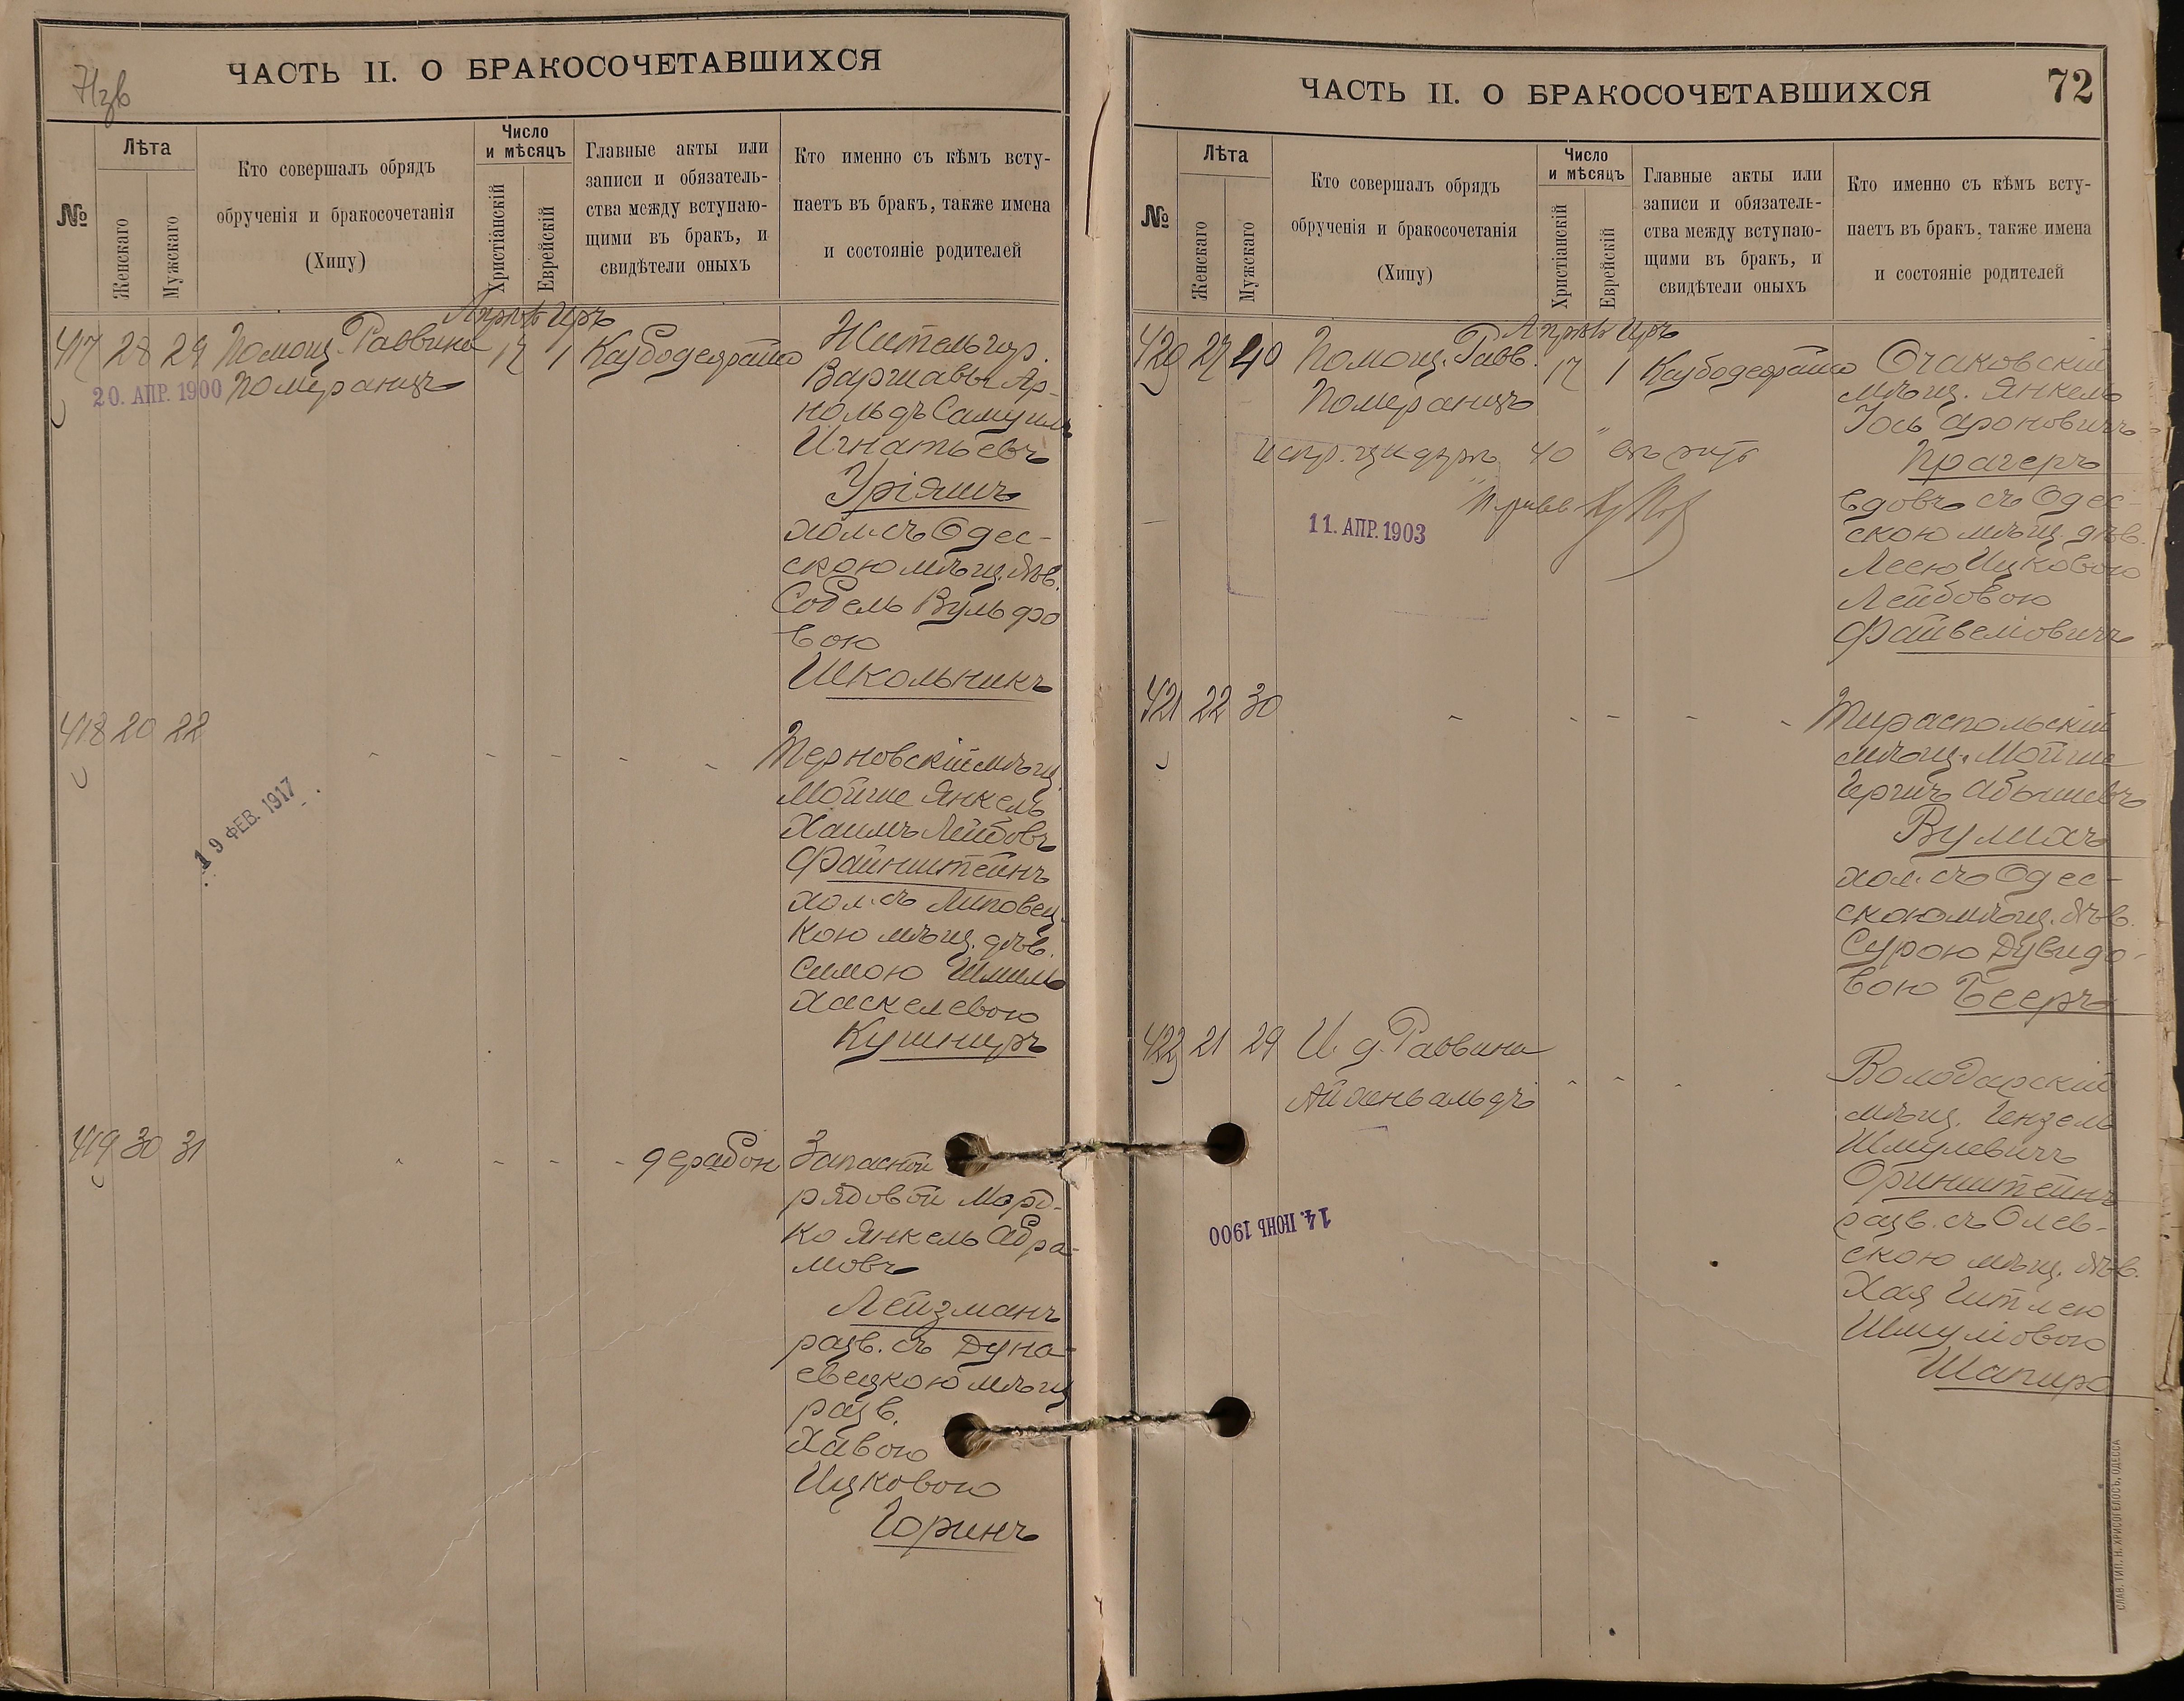 ЧАСТЬ II. О БРАКОСОЧЕТАВШИХСЯ
№
Лѣта
Женскаго
Мужскаго
Кто совершалъ обрядъ
обрученія и бракосочетанія
(Хипу)
Число
и мѣсяцъ
Христіанскій
Еврейскій
Главные акты или
записи и обязатель-
ства между вступаю-
щими въ бракъ, и
свидѣтели оныхъ
Кто именно съ кѣмъ всту-
паетъ въ бракъ, также имена
и состояніе родителей
Апрѣль Иръ
417 28 29 Помощ. Раввина 17 1
Померанцъ
20. АПР. 1900
Житель гор.
Варшавы Ар-
нольдъ Самуилъ
Игнатьевъ
Уріяшъ
хол. съ Одес-
скою мѣщ. дѣв.
Собель Вульфо
вою
Школьникъ
418 20 22
19 ФЕВ. 1917
Терновскій мѣщ.
Мойше Янкель
Хаимъ Лейбовъ
Файнштейнъ
хол. съ Липовец
кою мѣщ. дѣв.
Симою Шмиль
Хаскелевою
Кушниръ
419 30 31
Запасной
рядовой Морд-
ко Янкель Абра-
мовъ
Лейзманъ
разв. съ Дуна-
евецкою мѣщ
разв.
Хавою
Ицковою
Горинъ
ЧАСТЬ II. О БРАКОСОЧЕТАВШИХСЯ
72
№
Лѣта
Женскаго
Мужскаго
Кто совершалъ обрядъ
обрученія и бракосочетанія
(Хипу)
Число
и мѣсяцъ
Христіанскій
Еврейскій
Главные акты или
записи и обязатель-
ства между вступаю-
щими въ бракъ, и
свидѣтели оныхъ
Кто именно съ кѣмъ всту-
паетъ въ бракъ, также имена
и состояніе родителей
Апрѣль Иръ
420 27 40 Помощ. Равв. 17 1
Померанцъ
11. АПР. 1903
Очаковскій
мѣщ. Янкель
Іось Ароновичъ
Прагеръ
вдовъ съ Одес-
скою мѣщ. дѣв.
Леею Ицковою
Лейбовою
Файвеліовичъ
421 22 30
Тираспольскій
мѣщ. Мойше
Гершъ Абышевъ
Вулихъ
хол. съ Одес-
скою мѣщ. дѣв.
Сурою Дувидо-
вою Бееръ
422 21 29 И. д. Раввина
Айхенвальдъ
14. ІЮНЬ 1900
Володарскій
мѣщ. Гензель
Шмулевичъ
Оринштейнъ
разв. съ Олев-
скою мѣщ. дѣв.
Хая Гитлею
Шмуліовою
Шапиро
СЛАВ. ТИП. Н. ХРИСОГЕЛОСЪ, ОДЕССА